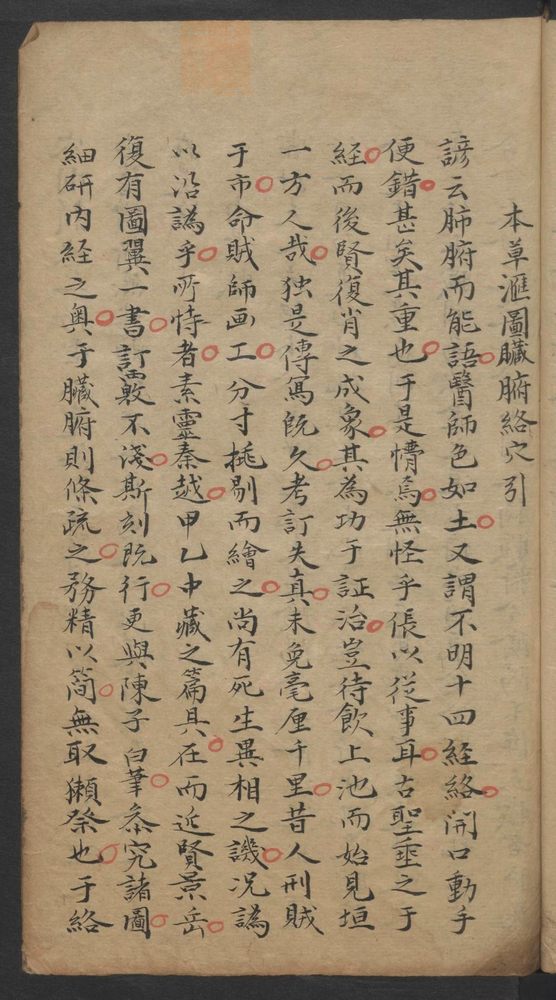 本草滙圖臟腑絡穴引
諺云肺腑而能語醫師色如土又謂不明十四經絡開口動手
便錯甚矣其重也于是懵焉無怪乎倀以從事耳古聖垂之于
經而後賢復肖之成象其為功于証治豈待飲上池而始見垣
一方人哉独是傳寫既久考訂失真未免毫厘千里昔人刑賊
于市命賊師画工分寸㧻剔而繪之尚有死生異相之譏况譌
以沿譌乎所恃者素靈秦越甲乙中藏之篇具在而近賢景岳
復有圖翼一書訂覈不淺斯刻既行更與陳子白筆叅究諸圖
細研内經之奥于臟腑則條疏之務精以简無取獺祭也于絡